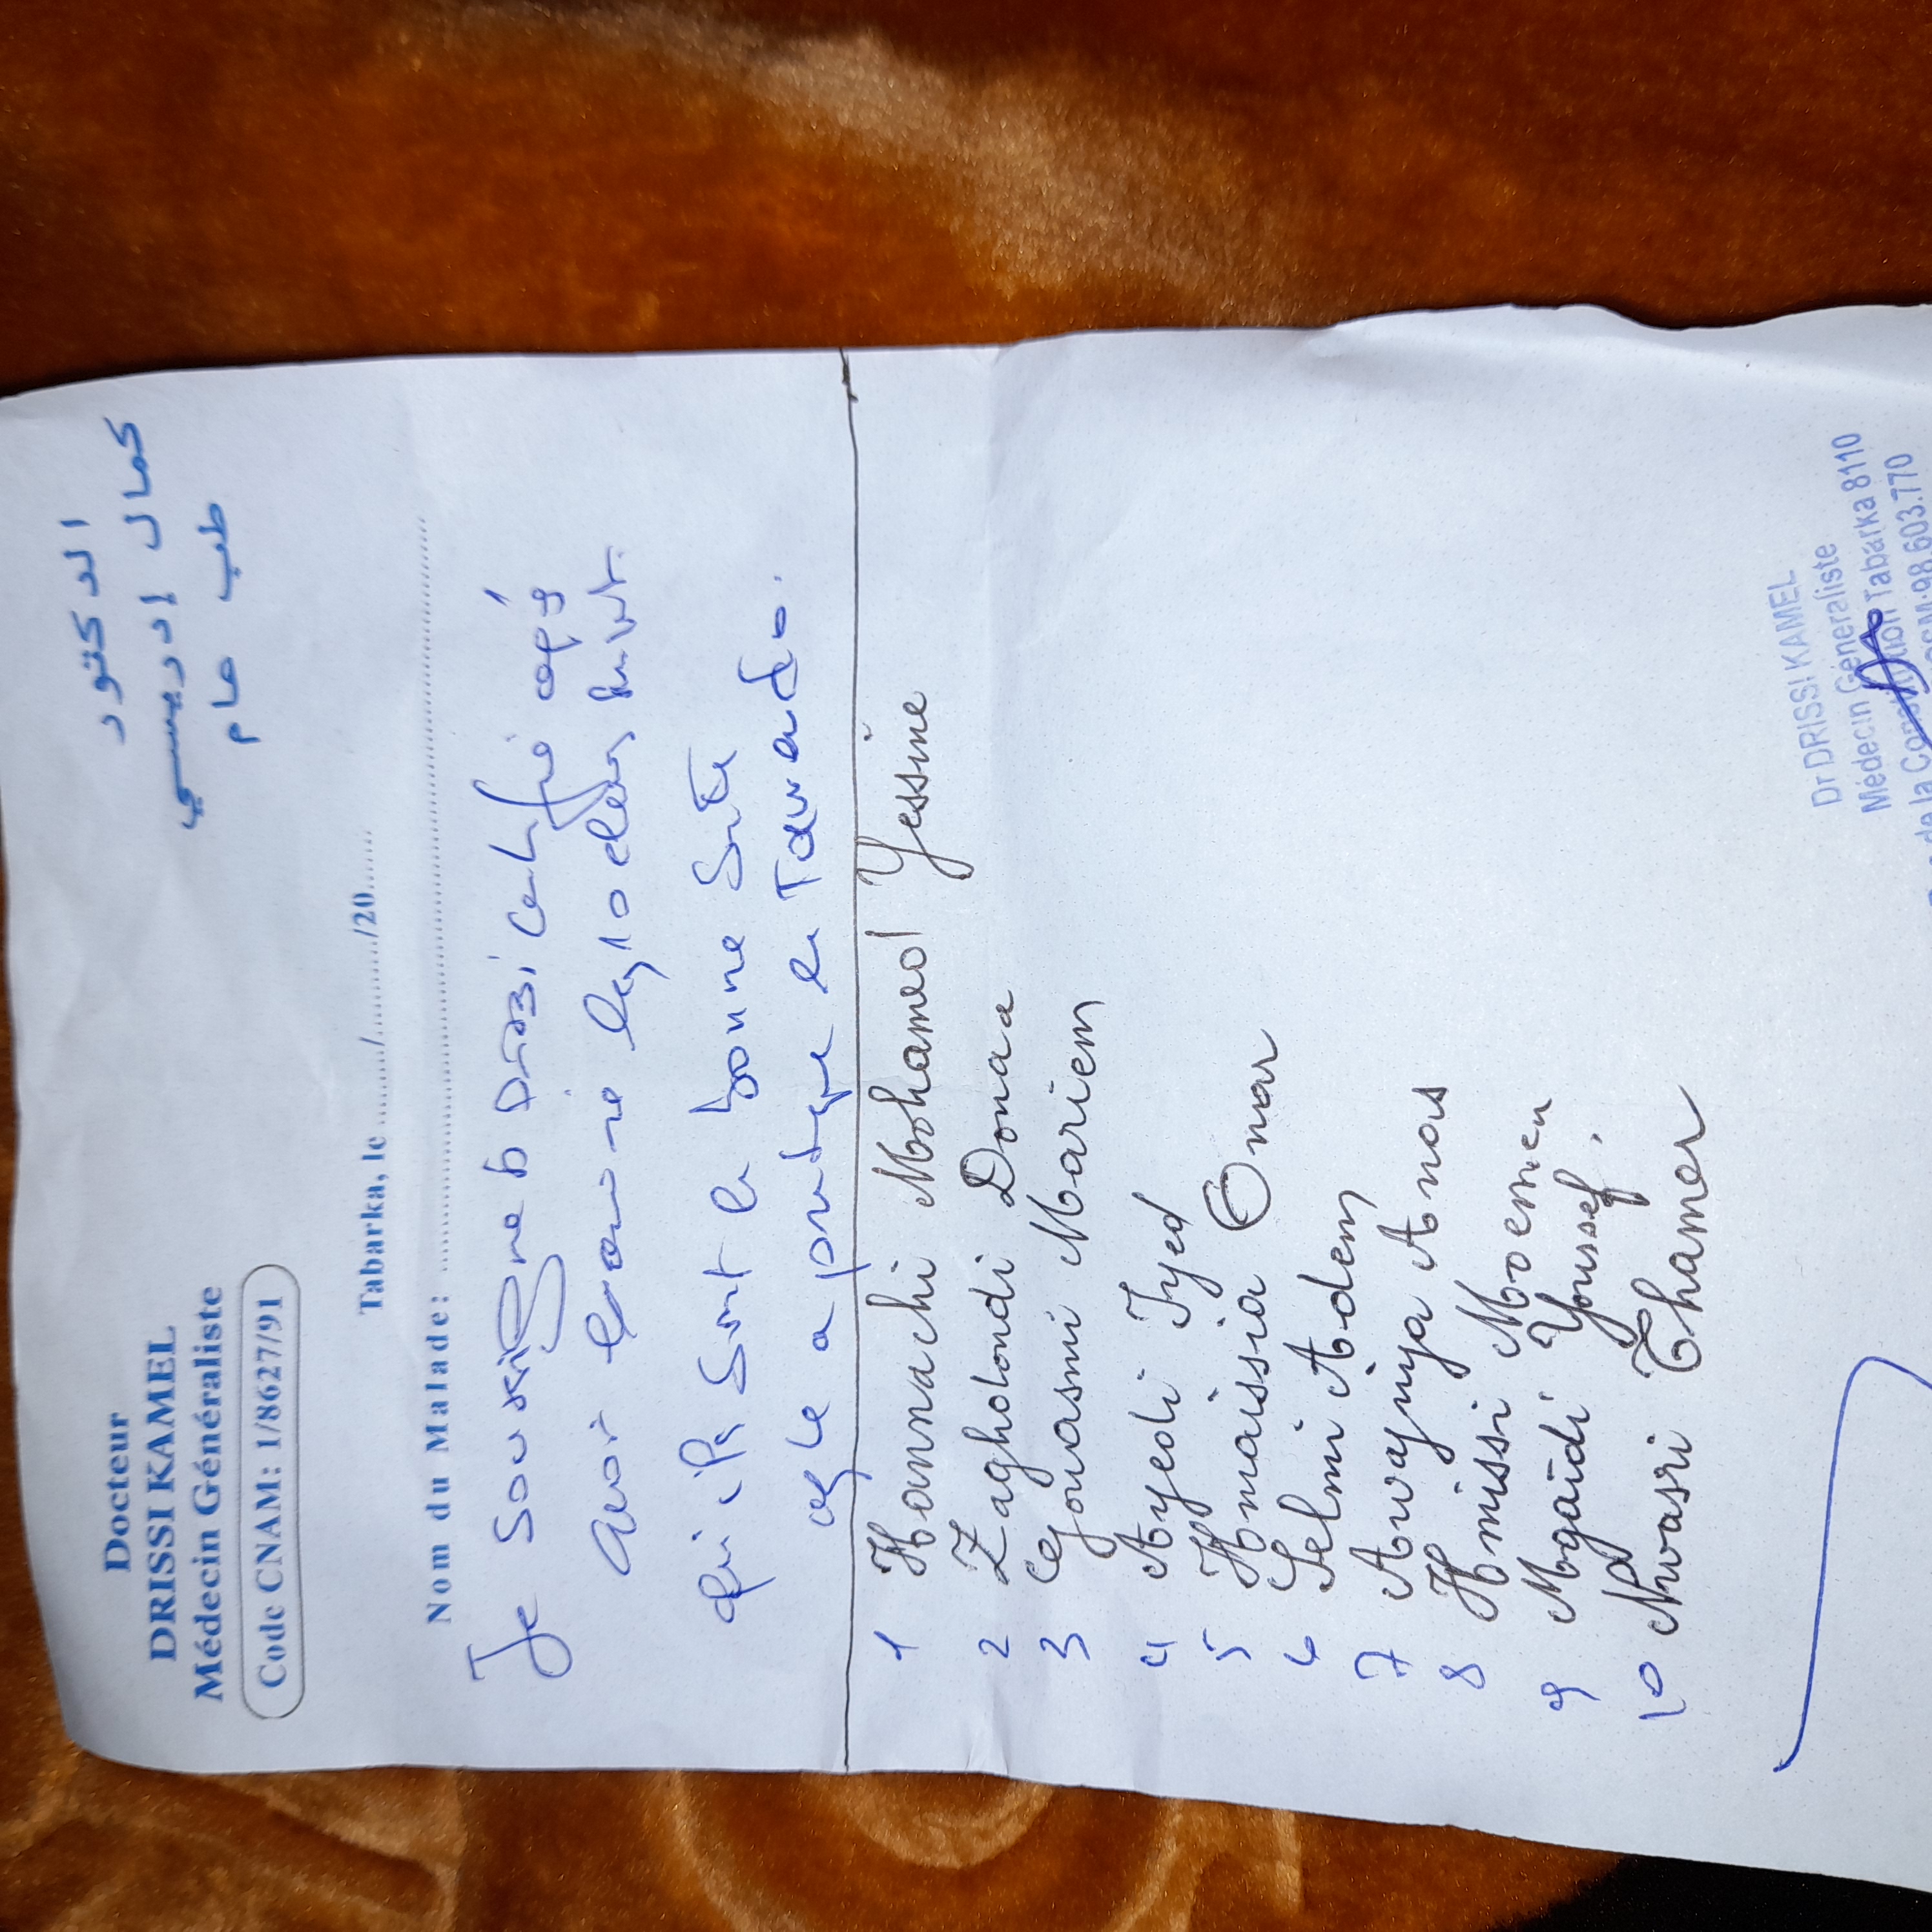 Docteur
DRISSI KAMEL
Médecin Généraliste
Code CNAM: 1/8627/91
الدكتور
كمال إدريسي
طب عام
Tabarka, le ........./........./20......
Nom du Malade: ........................................
Je soussigné Dr Drissi certifie après
avoir examiné les 10 élèves suivt.
qui ils sont en bonne santé
apte a pratique le Taekwondo.
1 Hannachi Mohamed Yessine
2 Zagholondi Donia
3 Gouasmi Mariem
4 Ayedi Iyed
5 Hmaissia Omar
6 Selmi Adem
7 Awaynya Anas
8 Hmissi Moemen
9 Mgaidi Youssef.
10 Nwasri Thamer
Dr DRISSI KAMEL
Médecin Généraliste
de la Constitution Tabarka 8110
GSM: 98.603.770